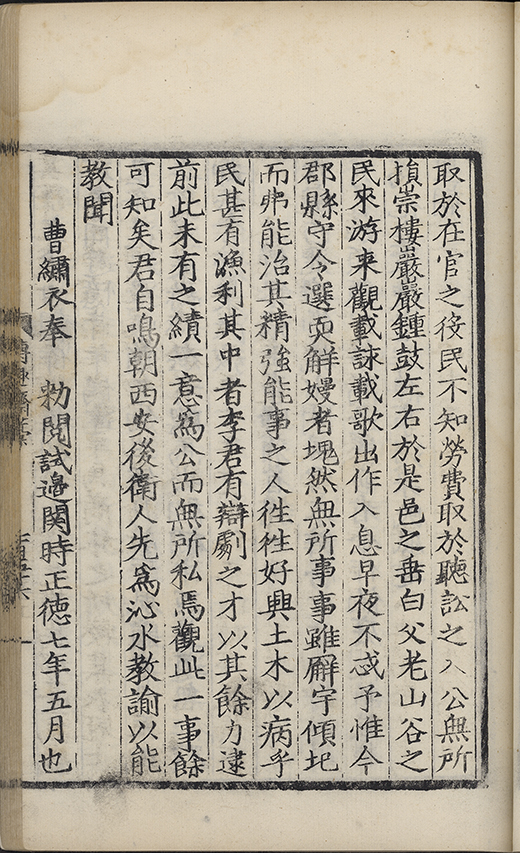 取於在官之役民不知勞費取於聽訟之入公無所
損崇樓巖巖鍾鼓左右於是邑之垂白父老山谷之
民來游来觀載詠載歌出作入息早夜不忒予惟今
郡縣守令選耎觧嫚者塊然無所事事雖廨宇傾圮
而弗能治其精強能事之人徃徃好興土木以病乎
民甚有漁利其中者李君有辯劇之才以其餘力逮
前此未有之績一意為公而無所私焉觀此一事餘
可知矣君自鳴朝西安後衛人先為沁水教諭以能
教聞
曹繡衣奉 勑閱試邉関時正徳七年五月也